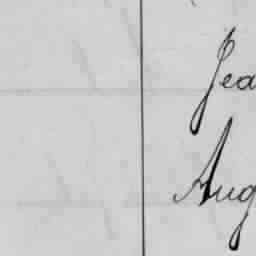 Jea
Aug